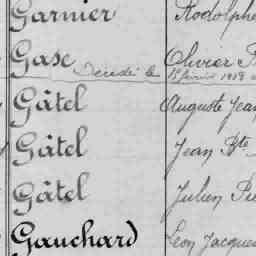 Garnier Rodolphe
Gasc Olivier
Décédé le 1er février 1918
Gâtel Auguste Jean
Gâtel Jean Bte
Gâtel Julien
Gauchard Léon Jacques